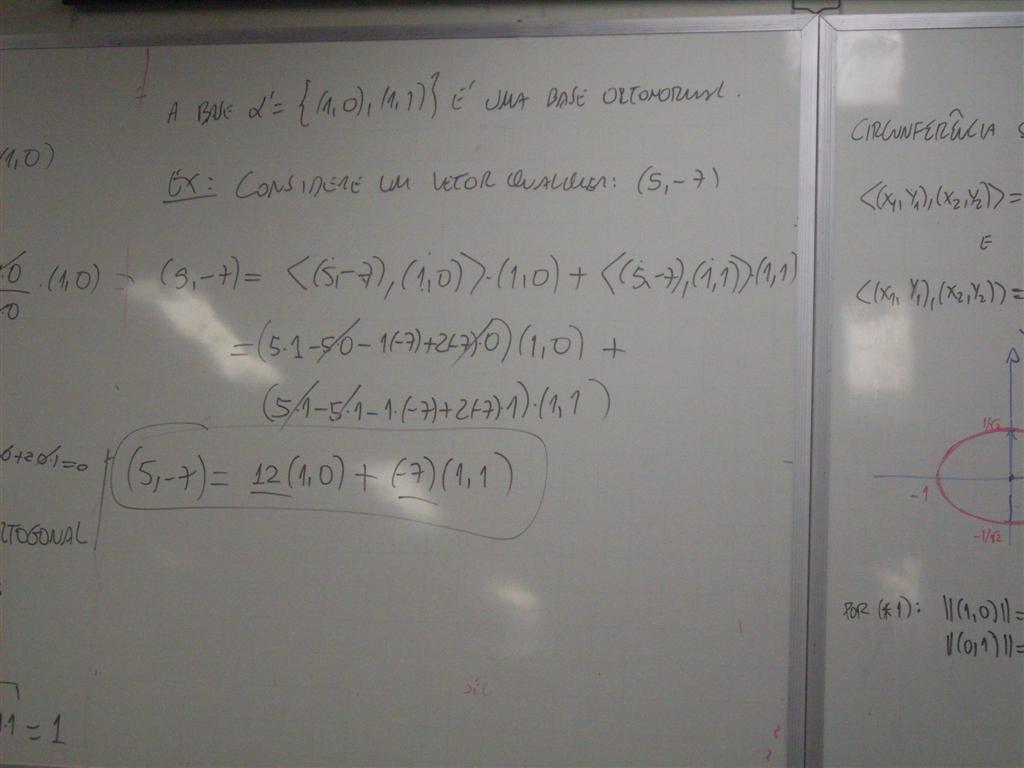 A BASE α' = {(1,0),(1,1)} É UMA BASE ORTONORMAL.
(1,0)
EX: CONSIDERE UM VETOR QUALQUER: (5,-7)
·(1,0)
(5,-7) = <(5,-7),(1,0)>·(1,0) + <(5,-7),(1,1)>·(1,1)
= (5·1-5·0-1(-7)+2(-7)·0)(1,0) +
(5·1-5·1-1·(-7)+2(-7)·1)·(1,1)
(5,-7) = 12(1,0) + (-7)(1,1)
+2·0·1=0
RTOGONAL
1·1 = 1
CIRCUNFERÊNCIA
<(x1,y1),(x2,y2)> =
E
<(x1,y1),(x2,y2)> =
1/√2
-1
-1/√2
POR (*1): ||(1,0)|| =
||(0,1)|| =